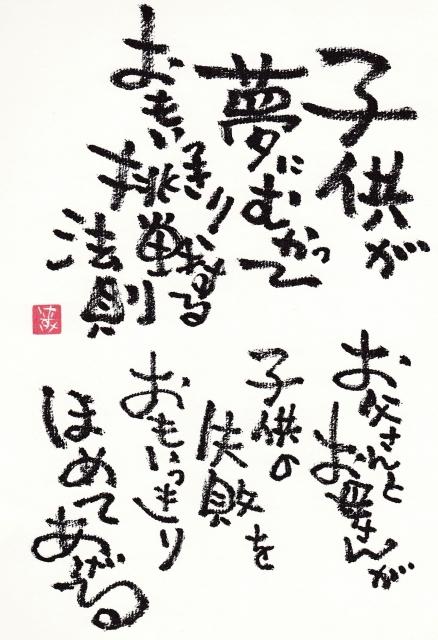 子供が
夢にむかって
おもいきり
挑戦する
法則
お父さんと
お母さんが
子供の
失敗を
おもいっきり
ほめてあげる